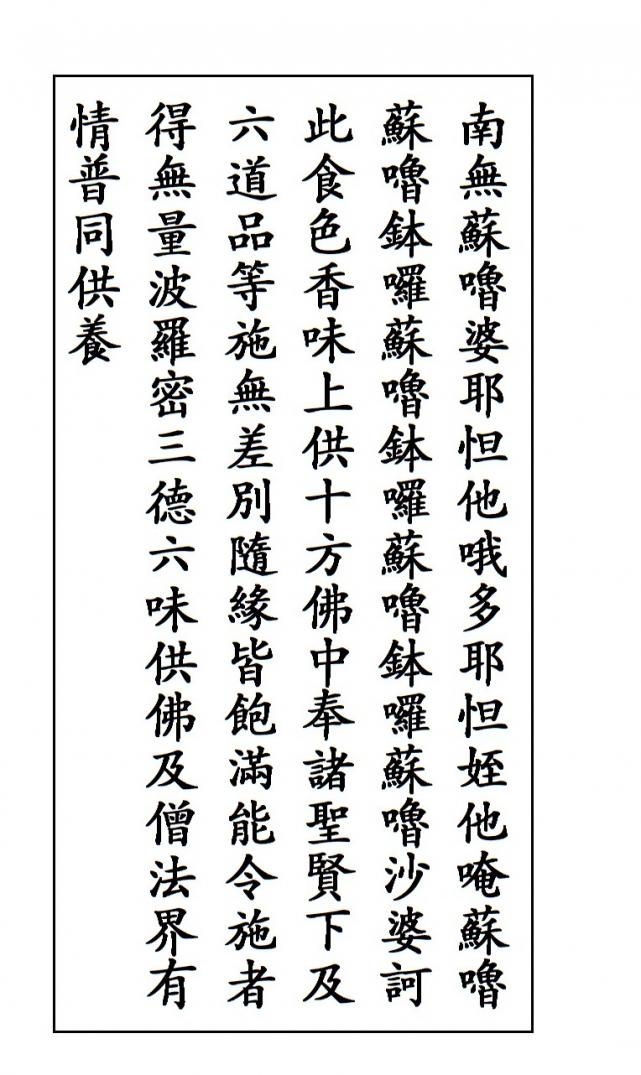 南無蘇嚕婆耶怛他哦多耶怛姪他唵蘇嚕
蘇嚕鉢囉蘇嚕鉢囉蘇嚕鉢囉蘇嚕沙婆訶
此食色香味上供十方佛中奉諸聖賢下及
六道品等施無差別隨緣皆飽滿能令施者
得無量波羅密三德六味供佛及僧法界有
情普同供養